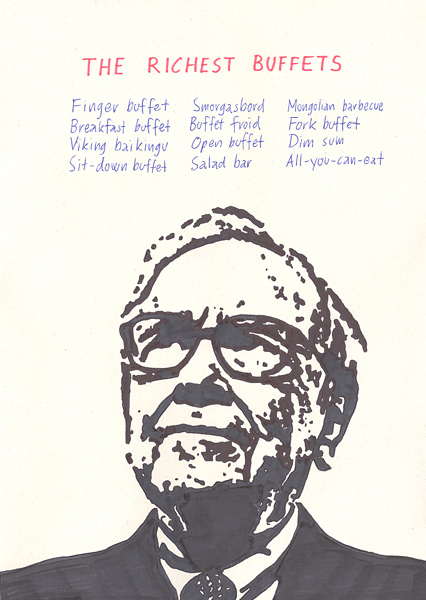 THE RICHEST BUFFETS
Finger buffet
Breakfast buffet
Viking baikingu
Sit-down buffet
Smorgasbord
Buffet froid
Open buffet
Salad bar
Mongolian barbecue
Fork buffet
Dim sum
All-you-can-eat